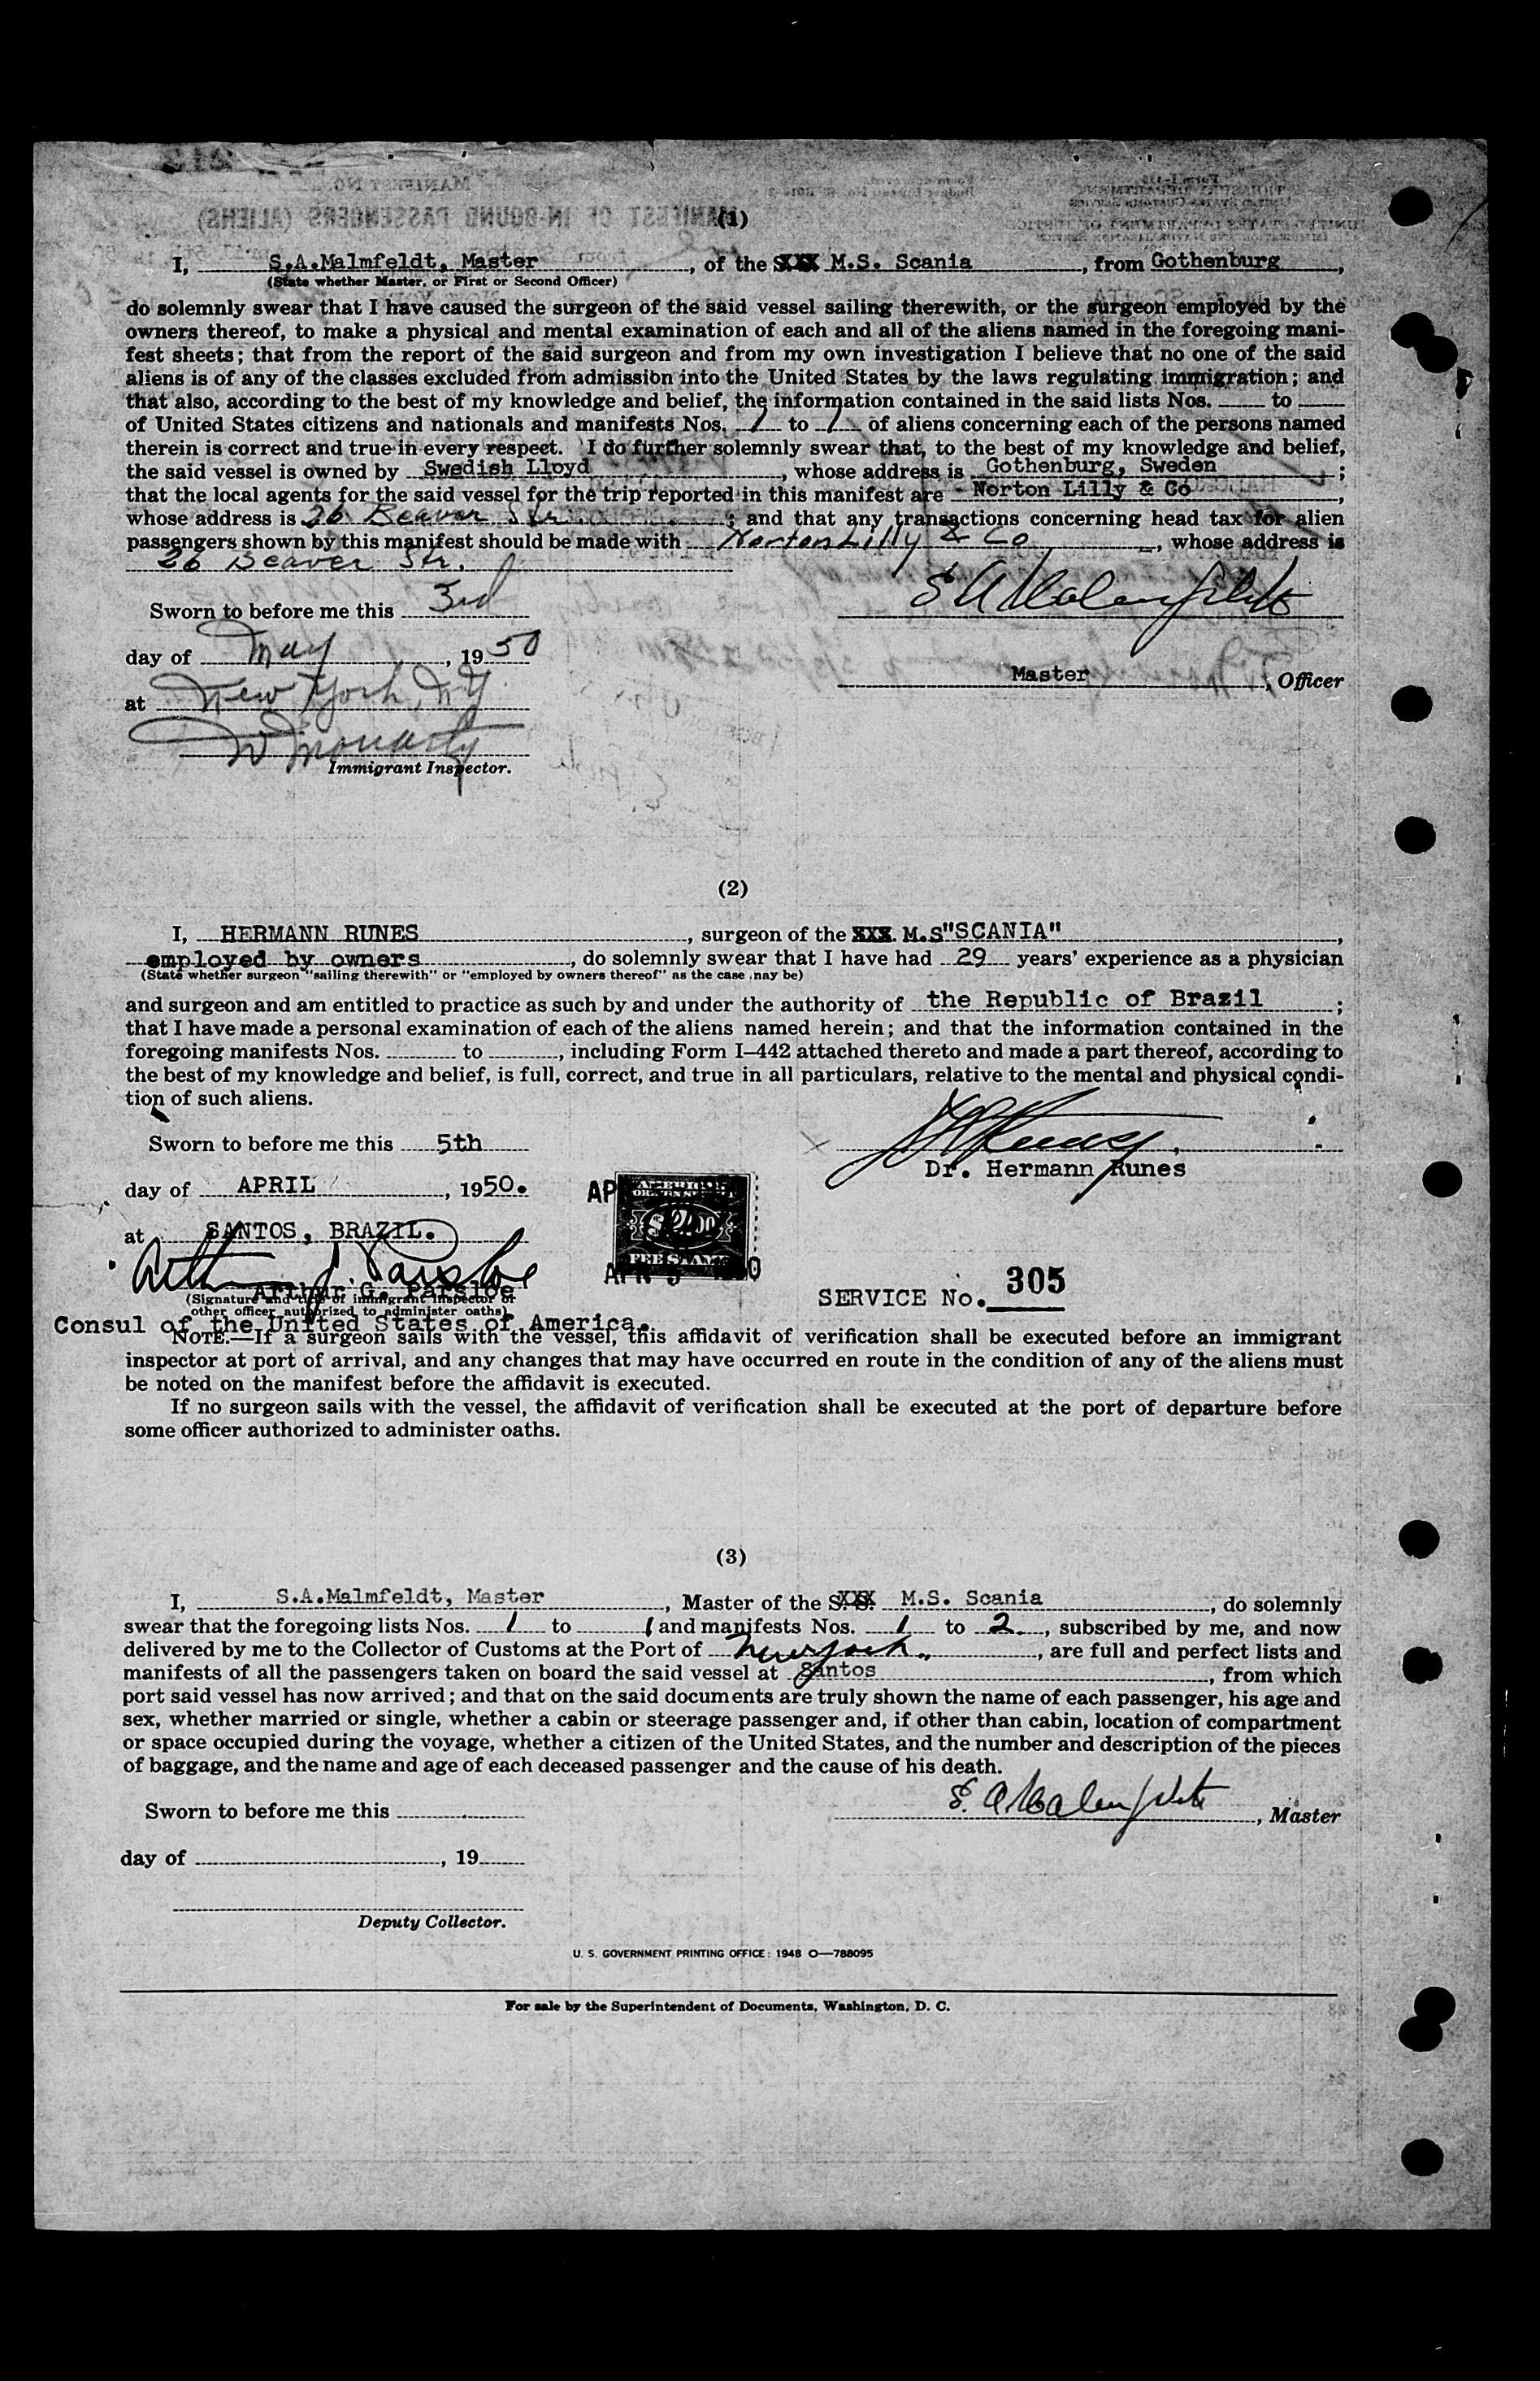 (1)
I, S.A.Malmfeldt, Master, of the S.S. XXX M.S. Scania, from Gothenburg,
(State whether Master, or First or Second Officer)
do solemnly swear that I have caused the surgeon of the said vessel sailing therewith, or the surgeon employed by the
owners thereof, to make a physical and mental examination of each and all of the aliens named in the foregoing mani-
fest sheets; that from the report of the said surgeon and from my own investigation I believe that no one of the said
aliens is of any of the classes excluded from admission into the United States by the laws regulating immigration; and
that also, according to the best of my knowledge and belief, the information contained in the said lists Nos. ____ to ____
of United States citizens and nationals and manifests Nos. 1 to 1 of aliens concerning each of the persons named
therein is correct and true in every respect. I do further solemnly swear that, to the best of my knowledge and belief,
the said vessel is owned by Swedish Lloyd, whose address is Gothenburg, Sweden;
that the local agents for the said vessel for the trip reported in this manifest are - Norton Lilly & Co,
whose address is 26 Beaver Str.; and that any transactions concerning head tax for alien
passengers shown by this manifest should be made with Norton Lilly & Co, whose address is
26 Beaver Str.
Sworn to before me this 3rd
S A Malmfeldt
day of May, 1950
Master, Officer
at New York, NY
W Moriarty
Immigrant Inspector.
(2)
I, HERMANN RUNES, surgeon of the XXX. M.S"SCANIA",
employed by owners, do solemnly swear that I have had 29 years' experience as a physician
(State whether surgeon "sailing therewith" or "employed by owners thereof" as the case may be)
and surgeon and am entitled to practice as such by and under the authority of the Republic of Brazil;
that I have made a personal examination of each of the aliens named herein; and that the information contained in the
foregoing manifests Nos. ____ to ____, including Form I-442 attached thereto and made a part thereof, according to
the best of my knowledge and belief, is full, correct, and true in all particulars, relative to the mental and physical condi-
tion of such aliens.
Sworn to before me this 5th
Dr. Hermann Runes
day of APRIL, 1950.
at SANTOS, BRAZIL.
FEE STAMP
Arthur G. Parsloe
(Signature and title of immigrant inspector or
other officer authorized to administer oaths)
SERVICE No. 305
Consul of the United States of America.
NOTE.—If a surgeon sails with the vessel, this affidavit of verification shall be executed before an immigrant
inspector at port of arrival, and any changes that may have occurred en route in the condition of any of the aliens must
be noted on the manifest before the affidavit is executed.
If no surgeon sails with the vessel, the affidavit of verification shall be executed at the port of departure before
some officer authorized to administer oaths.
(3)
I, S.A.Malmfeldt, Master, Master of the S.S. XXX M.S. Scania, do solemnly
swear that the foregoing lists Nos. 1 to 1 and manifests Nos. 1 to 2, subscribed by me, and now
delivered by me to the Collector of Customs at the Port of New York, are full and perfect lists and
manifests of all the passengers taken on board the said vessel at Santos, from which
port said vessel has now arrived; and that on the said documents are truly shown the name of each passenger, his age and
sex, whether married or single, whether a cabin or steerage passenger and, if other than cabin, location of compartment
or space occupied during the voyage, whether a citizen of the United States, and the number and description of the pieces
of baggage, and the name and age of each deceased passenger and the cause of his death.
Sworn to before me this ____
S. A Malmfeldt, Master
day of ____, 19____
Deputy Collector.
U. S. GOVERNMENT PRINTING OFFICE: 1948 O—788095
For sale by the Superintendent of Documents, Washington, D. C.